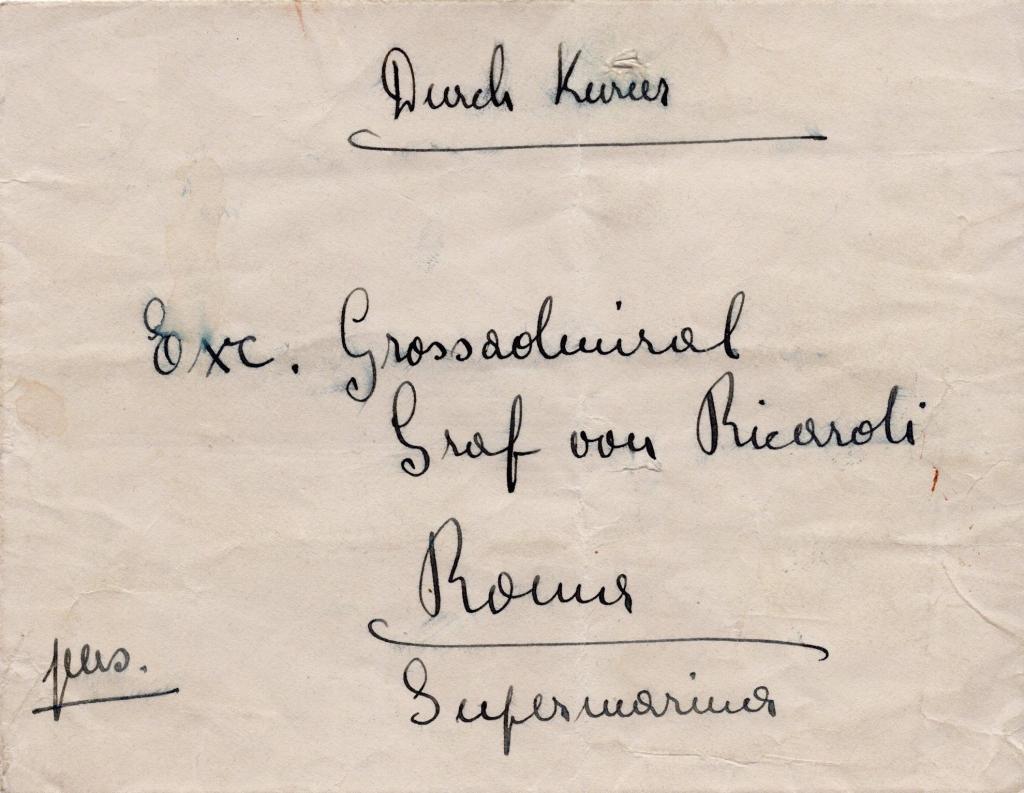 Durch Kurier
Exc. Grossadmiral
Graf von Ricardi
Roma
pers.
Supermarina